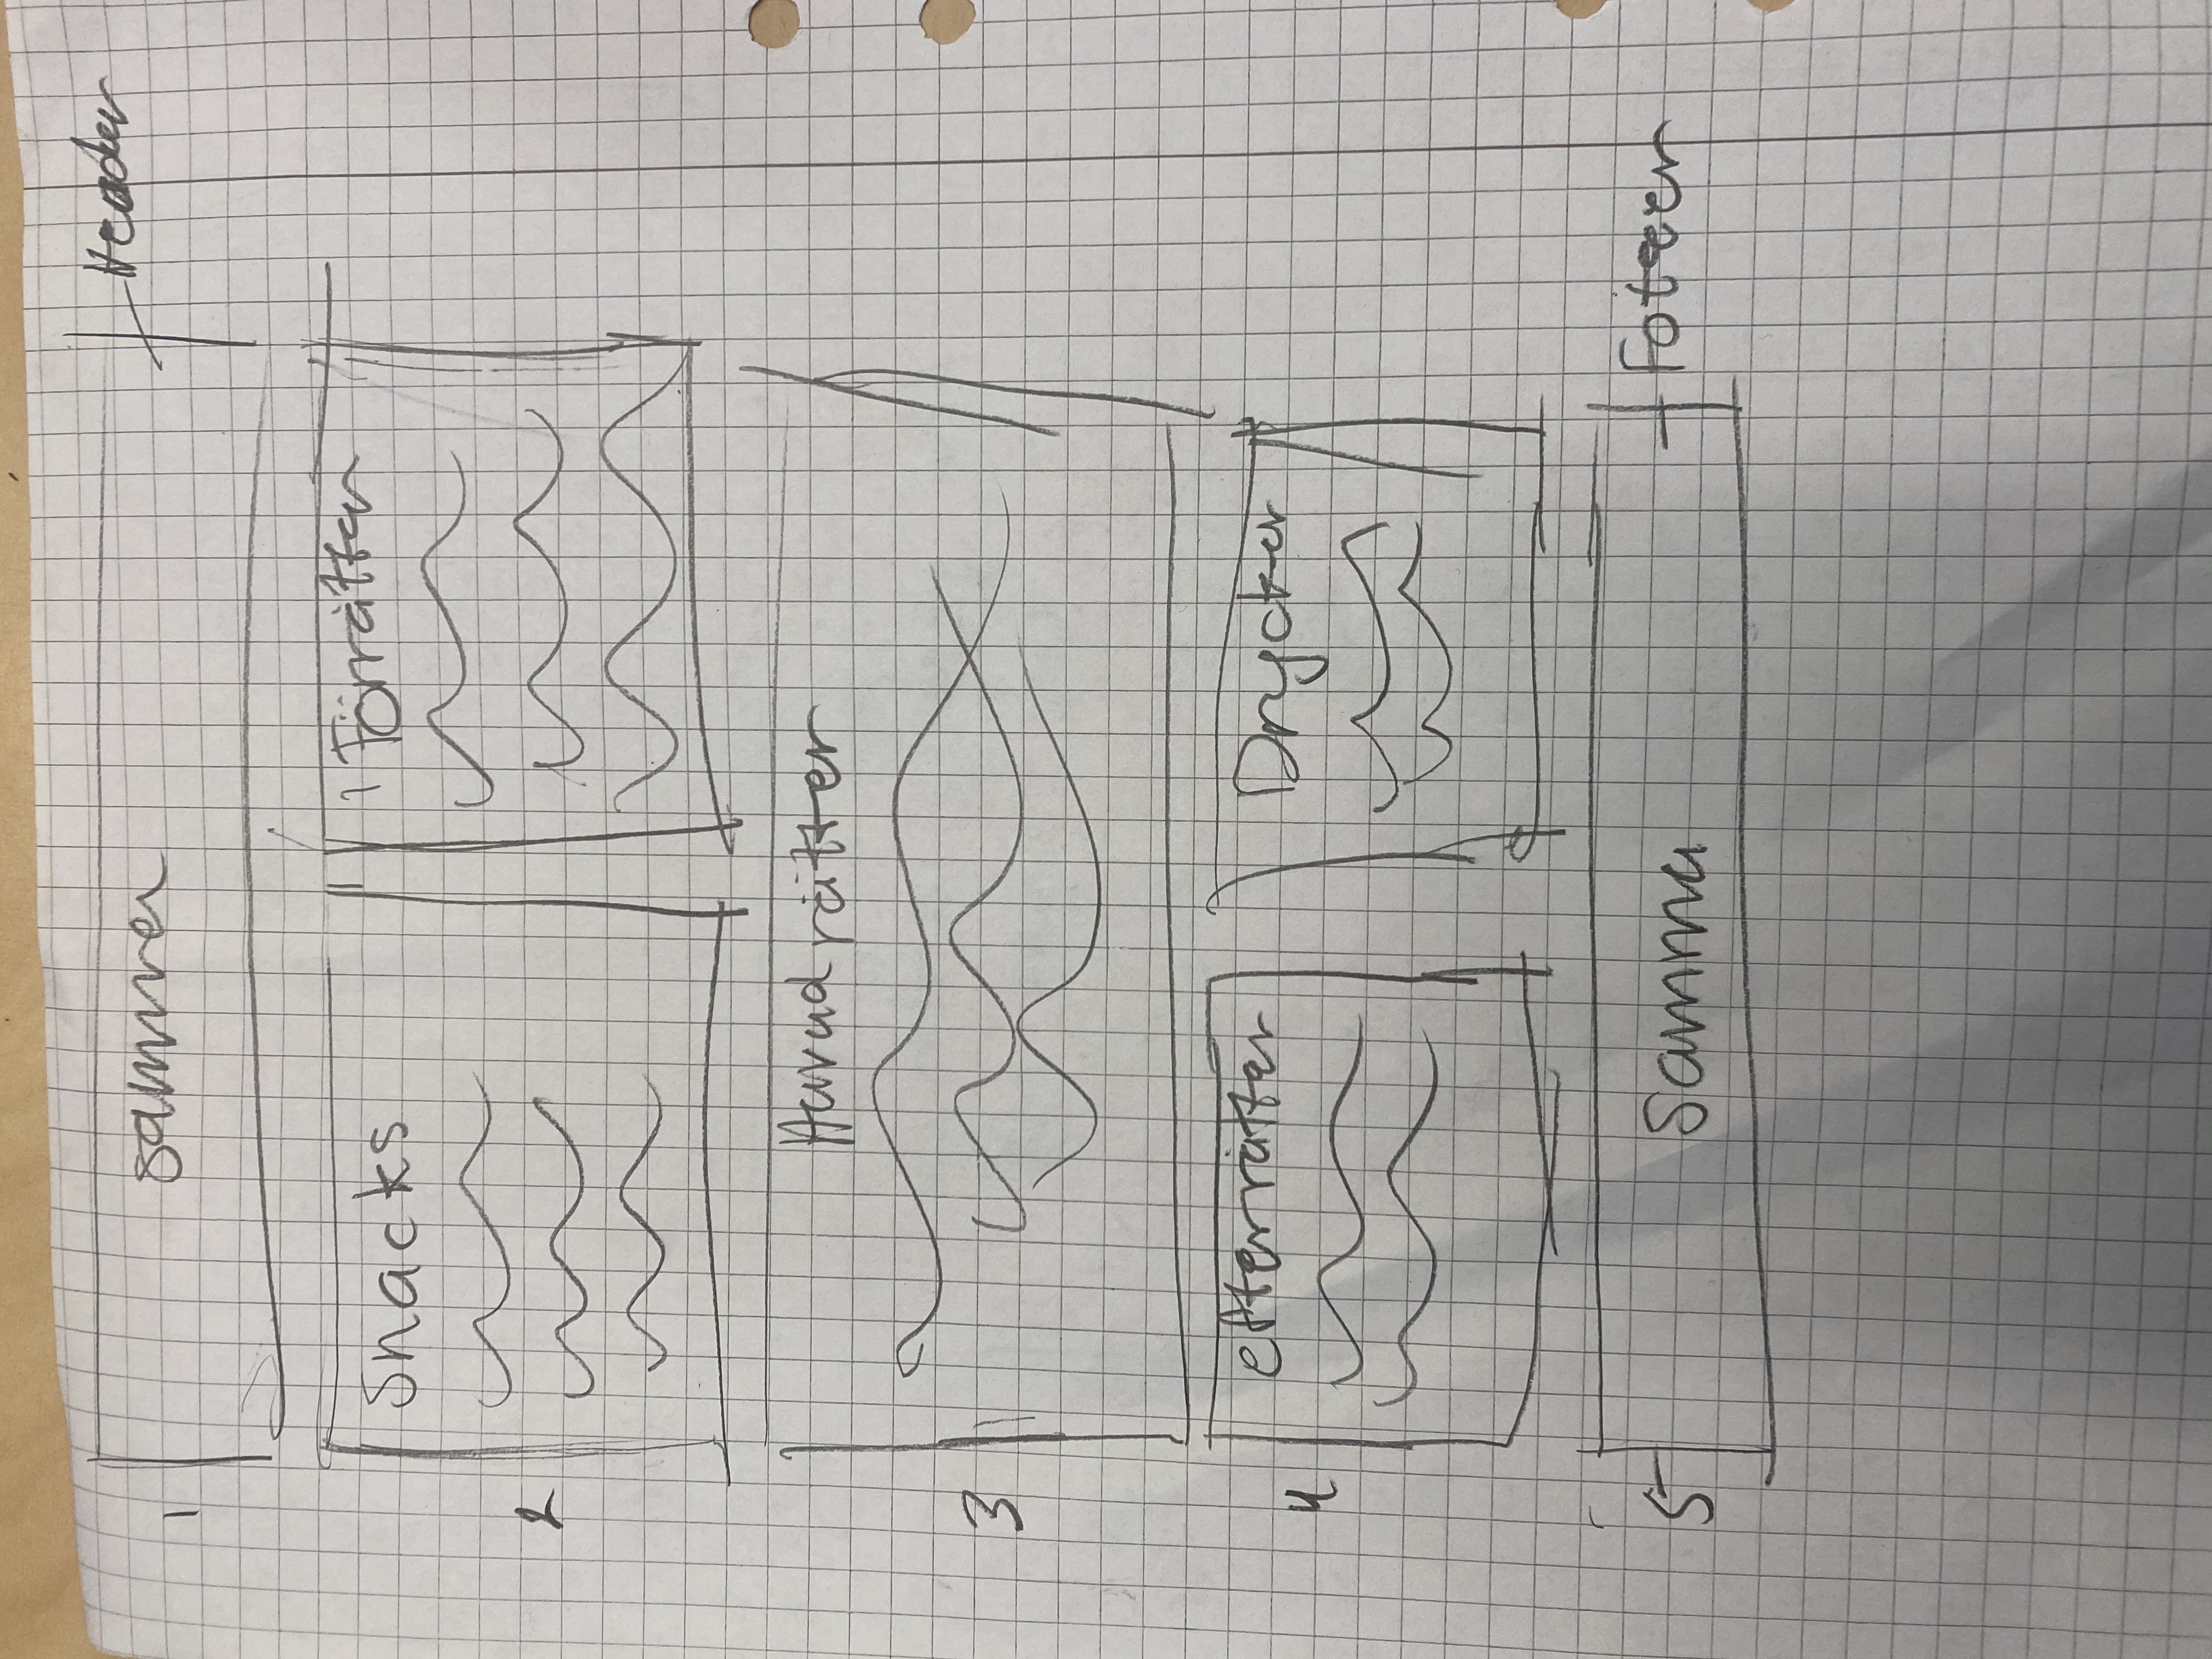 1 samma Header
2 Snacks Förrätter
3 Huvudrätter
4 efterrätter Drycker
5 Samma Foteer